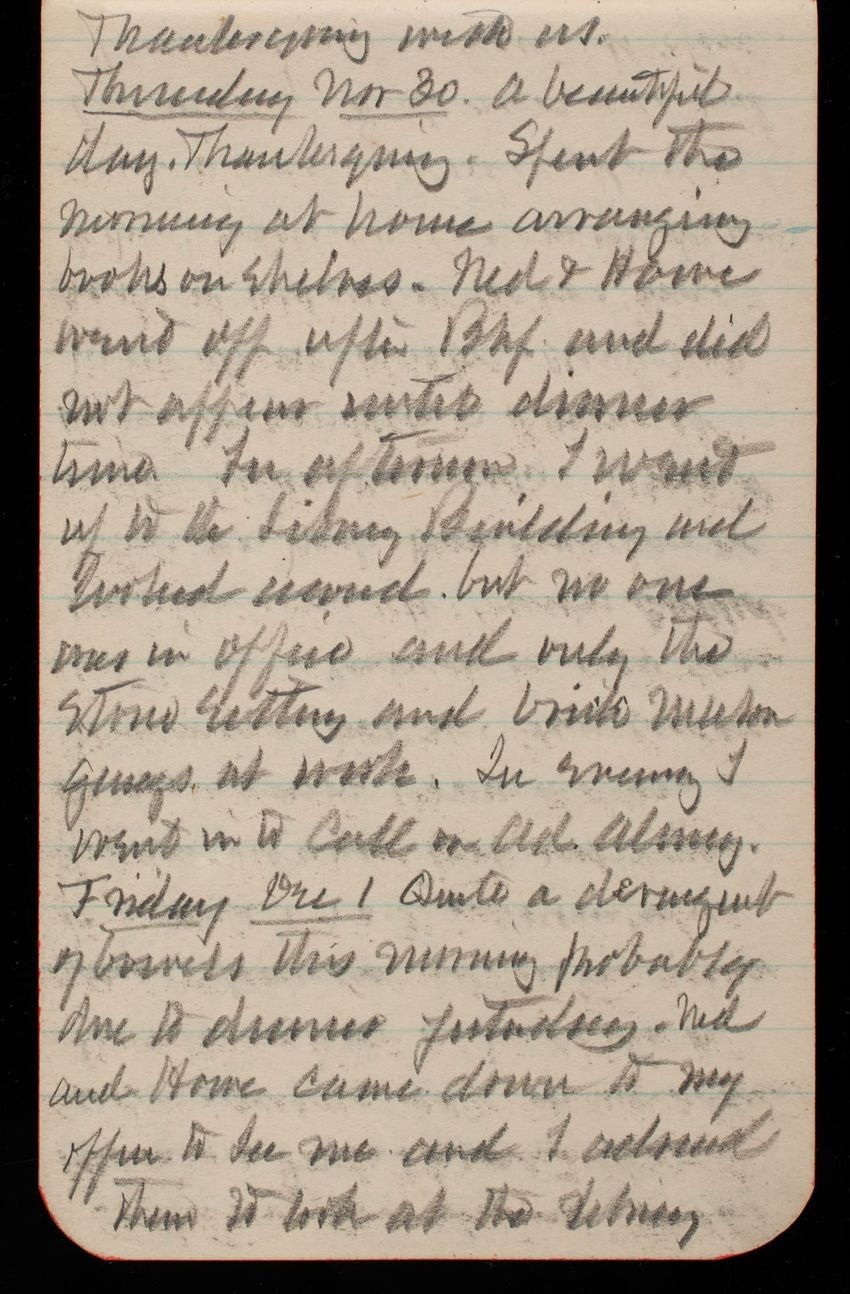 Thanksgiving with us.
Thursday Nov 30. A beautiful
day. Thanksgiving. Spent the
morning at home arranging
books on shelves. Ned & Howe
went off after Bkf. and did
not appear until dinner
time. In afternoon I went
up to the Library Building and
looked around. but no one
was in office and only the
Stone Setting and brick mason
gangs at work. In evening I
went in to Call on Ad. Almy.
Friday Dec 1 Quite a derangement
of bowels this morning probably
due to dinner yesterday. Ned
and Howe came down to my
office to see me and I advised
them to look at the Library